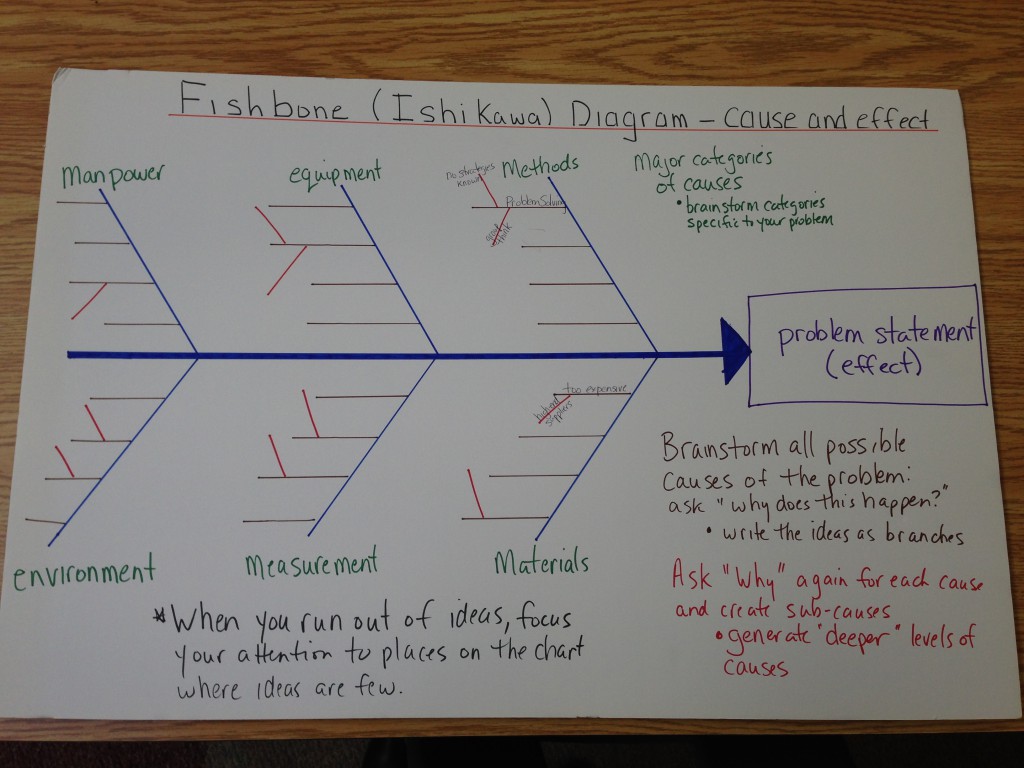 Fishbone (Ishikawa) Diagram - cause and effect
manpower
equipment
Methods
no strategies
known
Problem Solving
Major categories
of causes
• brainstorm categories
specific to your problem
problem statement
(effect)
too expensive
suppliers
environment
Measurement
Materials
Brainstorm all possible
causes of the problem:
ask "why does this happen?"
• write the ideas as branches
Ask "Why" again for each cause
and create sub-causes
• generate "deeper" levels of
causes
* When you run out of ideas, focus
your attention to places on the chart
where ideas are few.